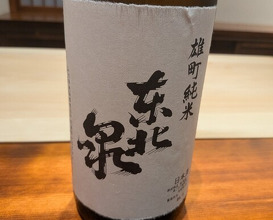 雄町純米
东北泉